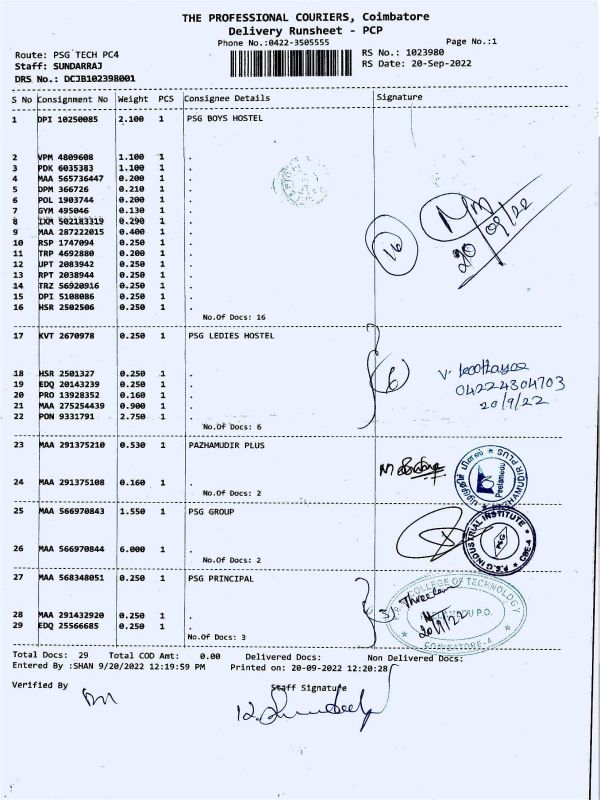 THE PROFESSIONAL COURIERS, Coimbatore
Delivery Runsheet - PCP
Phone No.:0422-3505555
Page No.:1
Route: PSG TECH PC4
RS No.: 1023980
Staff: SUNDARRAJ
RS Date: 20-Sep-2022
DRS No.: DCJB102398001
S No Consignment No Weight PCS Consignee Details Signature
1 DPI 10250085 2.100 1 PSG BOYS HOSTEL
2 VPM 4809608 1.100 1 .
3 PDK 6035383 1.100 1 .
4 MAA 565736447 0.200 1 .
5 DPM 366726 0.210 1 .
6 POL 1903744 0.200 1 .
7 GYM 495046 0.130 1 .
8 IXM 502183319 0.290 1 .
9 MAA 287222015 0.400 1 .
10 RSP 1747094 0.250 1 .
11 TRP 4692880 0.200 1 .
12 UPT 2083942 0.250 1 .
13 RPT 2038944 0.250 1 .
14 TRZ 56920916 0.250 1 .
15 DPI 5108086 0.250 1 .
16 HSR 2502506 0.250 1 .
No.Of Docs: 16
16
20/09/22
17 KVT 2670978 0.250 1 PSG LEDIES HOSTEL
18 HSR 2501327 0.250 1 .
19 EDQ 20143239 0.250 1 .
20 PRO 13928352 0.160 1 .
21 MAA 275254439 0.900 1 .
22 PON 9331791 2.750 1 .
No.Of Docs: 6
6
04224304703
20/9/22
23 MAA 291375210 0.530 1 PAZHAMUDIR PLUS
24 MAA 291375108 0.160 1 .
No.Of Docs: 2
PAZHAMUDIR PLUS
Peelamedu
25 MAA 566970843 1.550 1 PSG GROUP
26 MAA 566970844 6.000 1 .
No.Of Docs: 2
P.S.G INDUSTRIAL INSTITUTE
PSG
CBE-4
27 MAA 568348051 0.250 1 PSG PRINCIPAL
28 MAA 291432920 0.250 1 .
29 EDQ 25566685 0.250 1 .
No.Of Docs: 3
3
COLLEGE OF TECHNOLOGY
20/9/22
COIMBATORE-4
Total Docs: 29 Total COD Amt: 0.00 Delivered Docs: Non Delivered Docs:
Entered By :SHAN 9/20/2022 12:19:59 PM Printed on: 20-09-2022 12:20:28
Verified By
Staff Signature